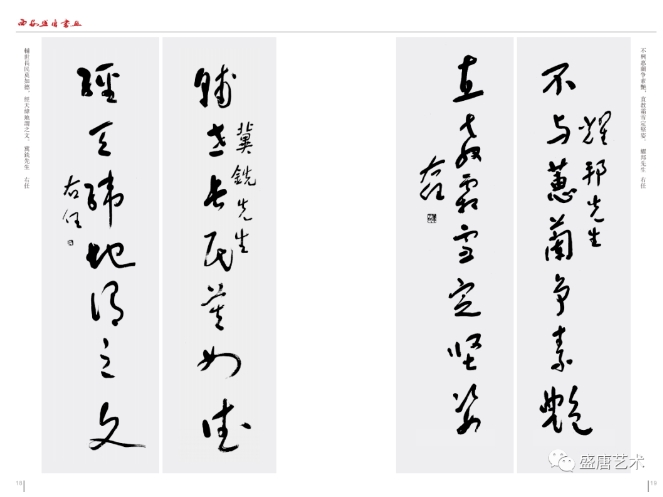 不與蕙蘭爭素艷
耀邦先生
直教霜雪定堅姿
右任
輔世長民莫如德
冀銑先生
經天緯地謂之文
右任
不與蕙蘭爭素艷，直教霜雪定堅姿 耀邦先生 右任
輔世長民莫如德，經天緯地謂之文 冀銑先生 右任
18
19
盛唐艺术